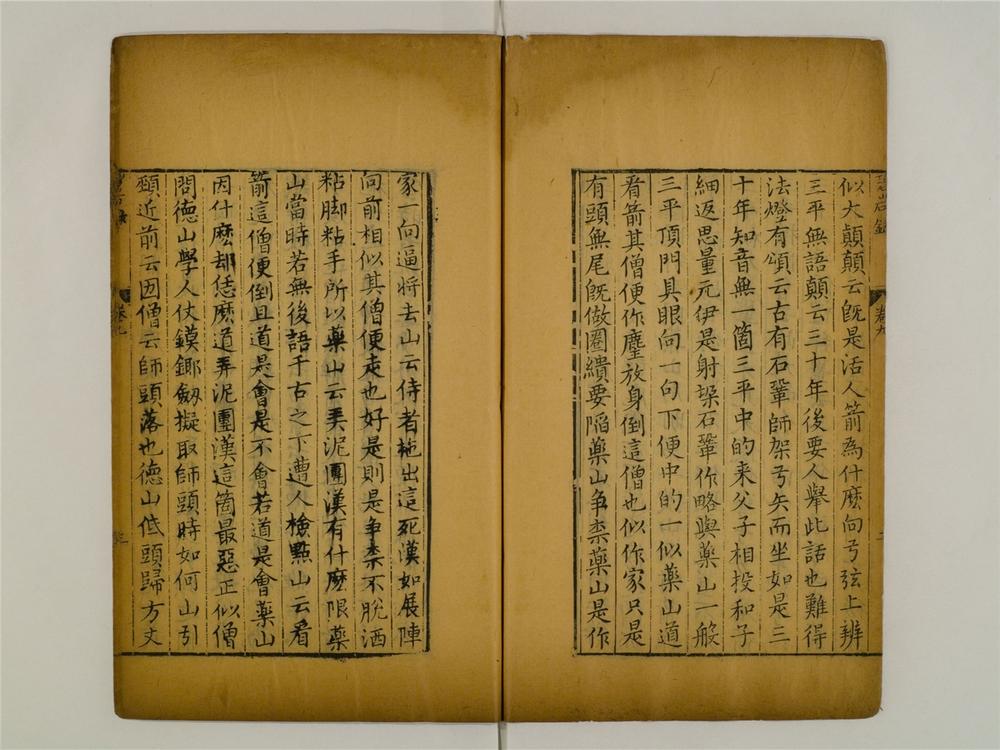 似大顛顛云旣是活人箭為什麽向弓弦上辨
三平無語顛云三十年後要人舉此話也難得
法燈有頌云古有石鞏師架弓矢而坐如是三
十年知音無一箇三平中的来父子相投和子
細返思量元伊是射垜石鞏作略與藥山一般
三平頂門具眼向一句下便中的一似藥山道
看箭其僧便作麈放身倒這僧也似作家只是
有頭無尾旣做圈繢要陥藥山争柰藥山是作
家一向逼將去山云侍者拖出這死漢如展陣
向前相似其僧便走也好是則是争柰不脫洒
粘脚粘手所以藥山云弄泥團漢有什麽限藥
山當時若無後語千古之下遭人檢點山云看
箭這僧便倒且道是會是不會若道是會藥山
因什麽却恁麽道弄泥團漢這箇最惡正似僧
問德山學人仗鏌鎁劔擬取師頭時如何山引
頸近前云㘞僧云師頭落也德山低頭歸方丈
卷九
卷九